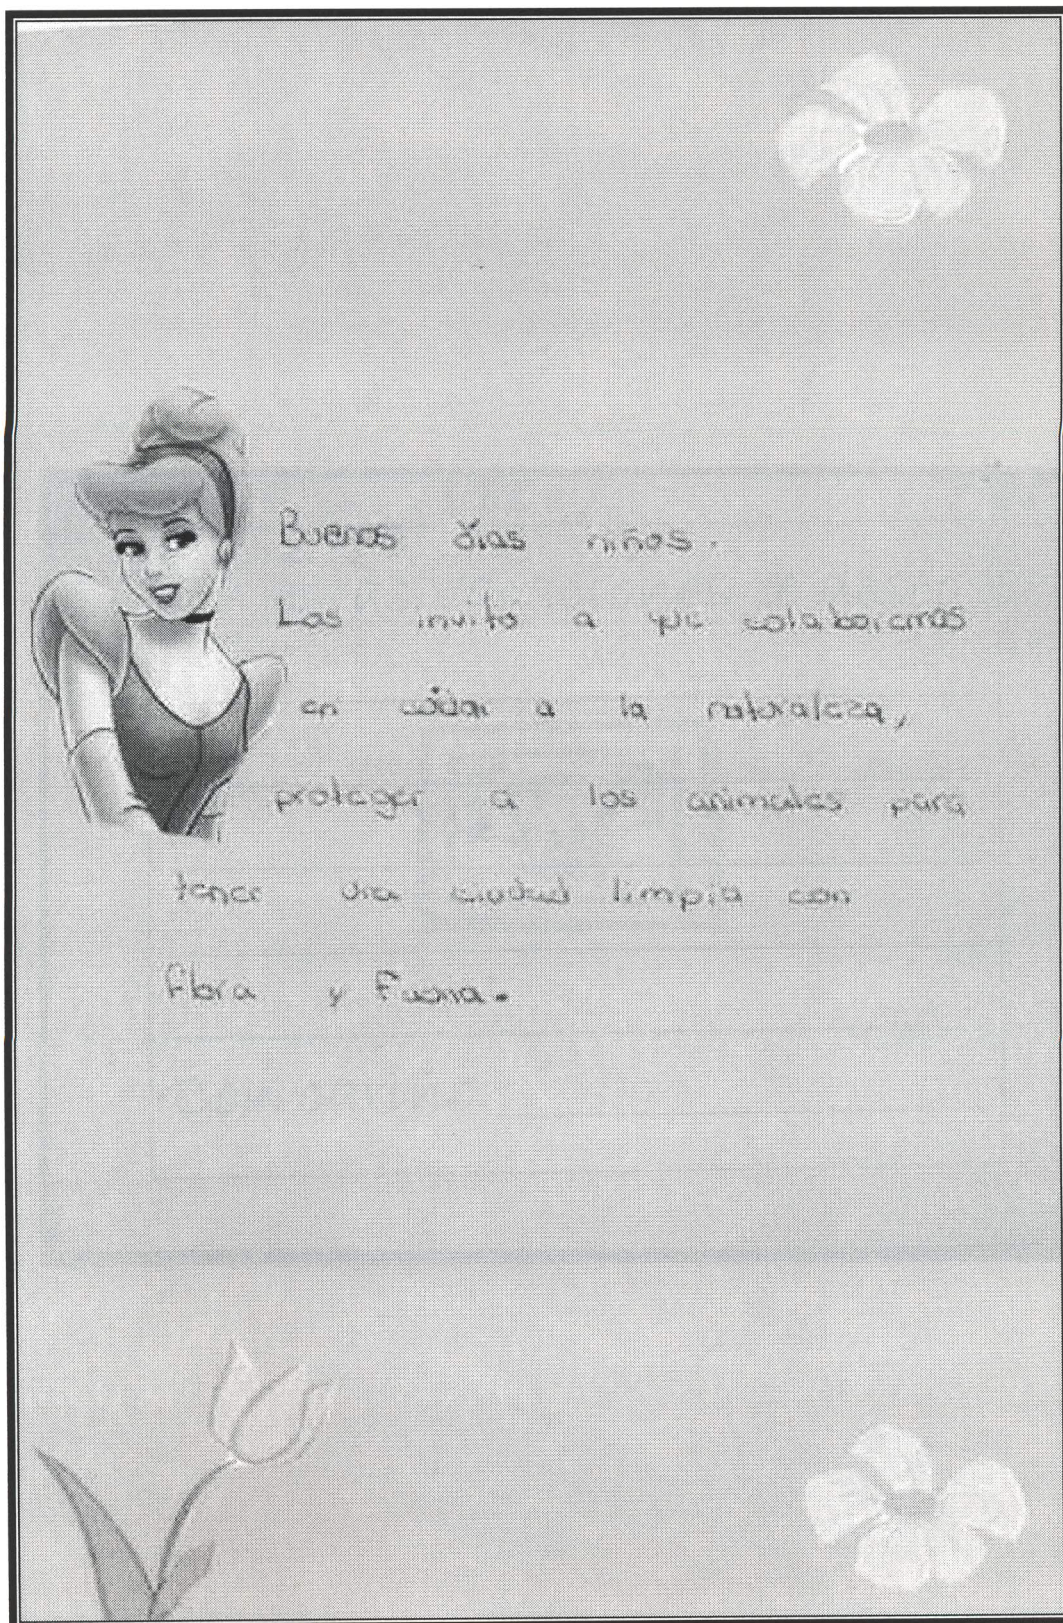 Buenos días niños.
Los invito a que colaboremos
en cuidar a la naturaleza,
proteger a los animales para
tener una ciudad limpia con
flora y Fauna.